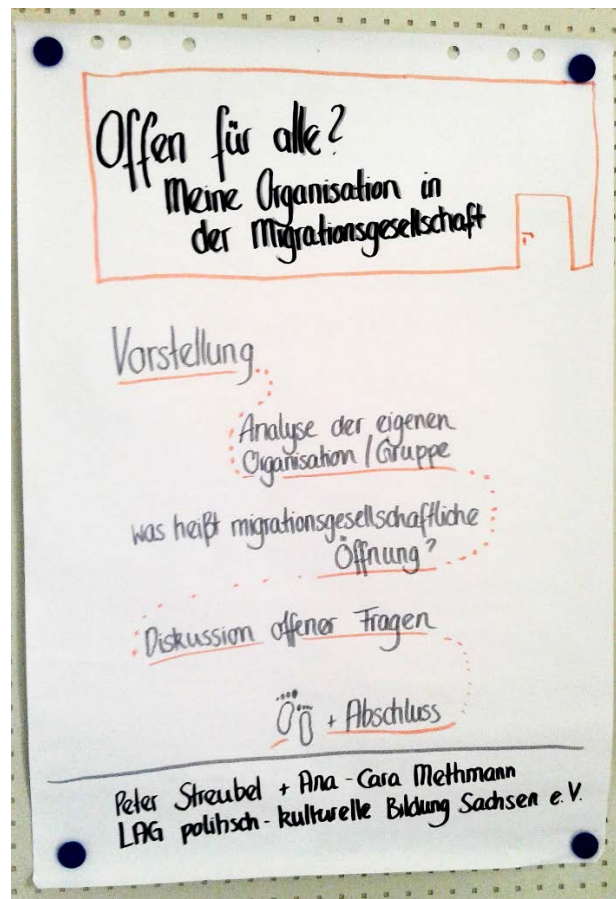 Offen für alle?
Meine Organisation in
der Migrationsgesellschaft
Vorstellung
Analyse der eigenen
Organisation / Gruppe
was heißt migrationsgesellschaftliche
Öffnung?
Diskussion offener Fragen
+ Abschluss
Peter Streubel + Ana-Cara Methmann
LAG politisch-kulturelle Bildung Sachsen e.V.